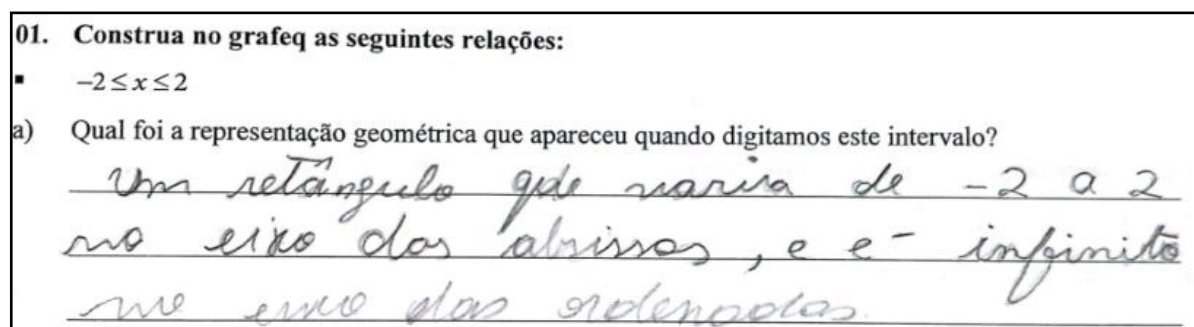 01. Construa no grafeq as seguintes relações:
▪ −2 ≤ x ≤ 2
a) Qual foi a representação geométrica que apareceu quando digitamos este intervalo?
Um retângulo que varia de -2 a 2
no eixo das abissas, e é infinito
no eixo das ordenadas.